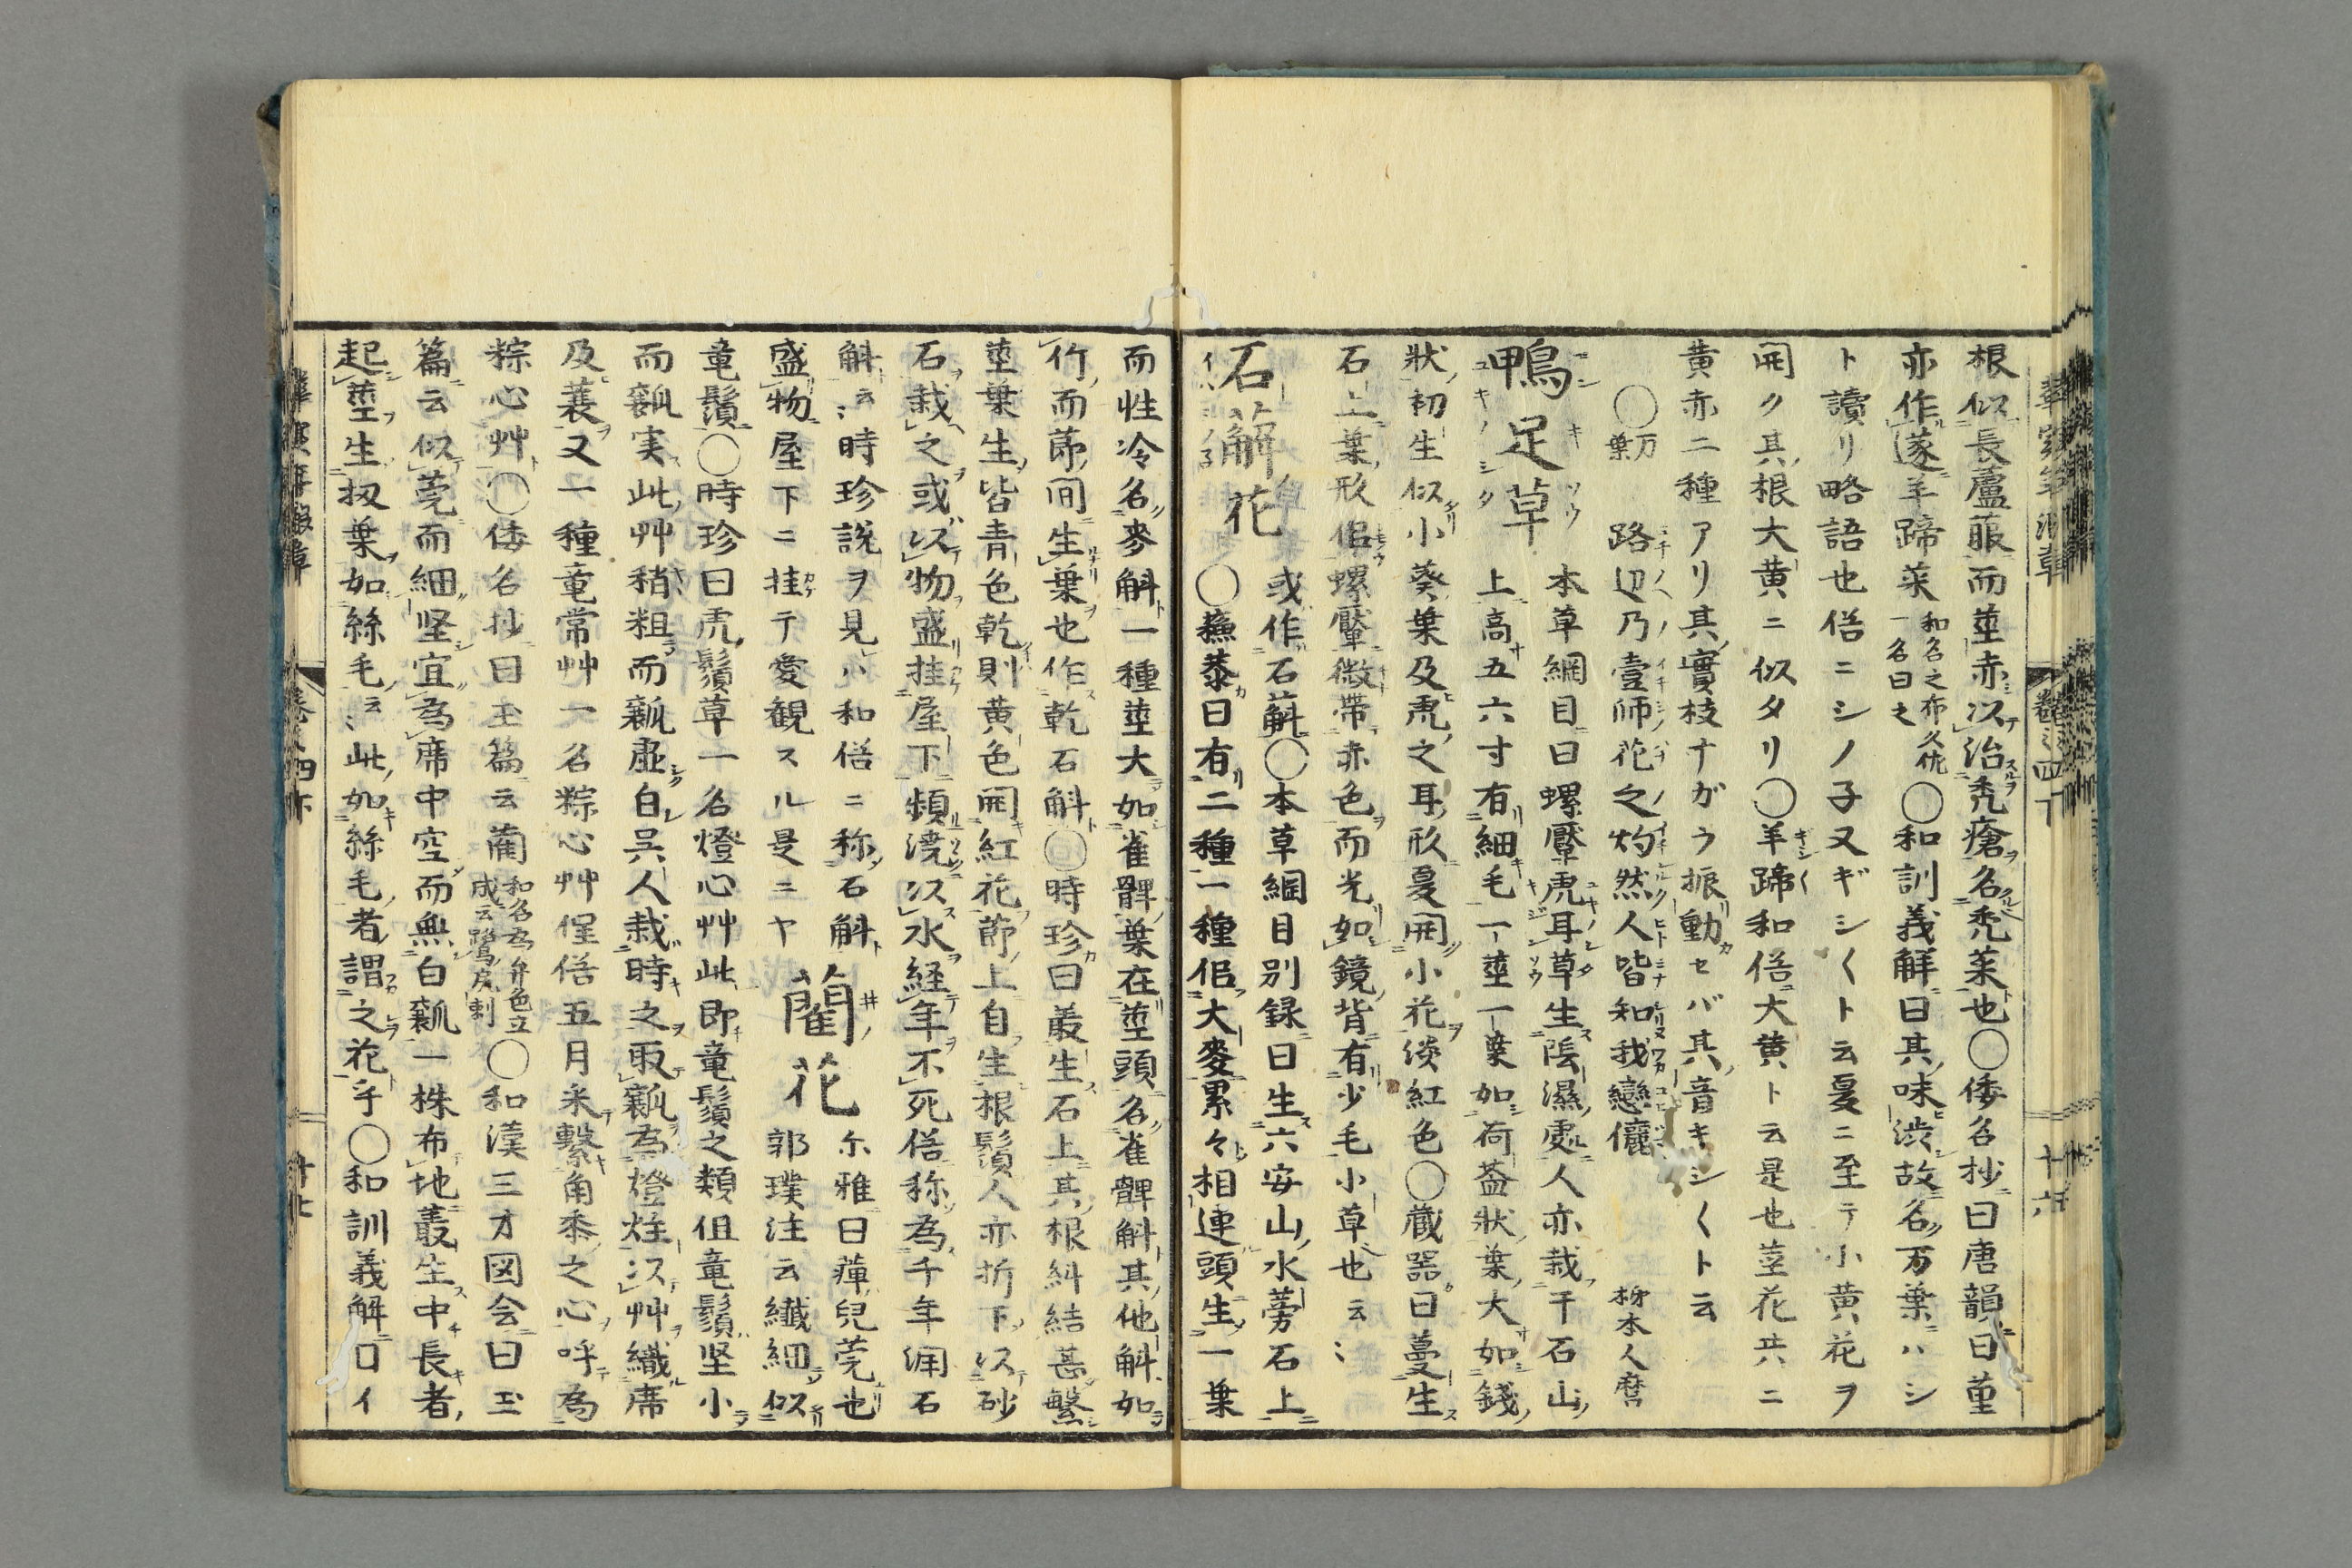 根似長蘆菔而莖赤以治禿瘡名禿菜也〇倭名抄曰唐韻曰菫
亦作蓫羊蹄菜和名之布久佐一名曰之〇和訓義解曰其味渋故名万葉ハシ
ト讀リ略語也俗ニシノ子又ギシ〱ト云夏ニ至テ小黄花ヲ
開ク其根大黄ニ似タリ〇羊蹄和俗大黄ト云是也茎花共ニ
黄赤二種アリ其實枝ナガウ振動セバ其音キシ〱ト云
〇万葉 路辺乃壹師花之灼然人皆知我戀儷 柿本人麿
鴨足草 本草綱目曰螺黶虎耳草生陰濕處人亦栽于石山
上高五六寸有細毛一莖一葉如荷葢狀葉大如錢
狀初生似小葵葉及虎之耳形夏開小花淡紅色〇蔵器曰蔓生
石上葉形侶螺黶微帶赤色而光如鏡背有少毛小草也云〻
石斛花 或作石斛〇本草綱目别録曰生六安山水蒡石上
〇蘓恭曰有二種一種侶大麥累々相連頭生一葉
而性冷名麥斛一種莖大如雀髀葉在莖頭名雀髀斛其他斛如
竹而莭間生葉也作乾石斛〇時珍曰叢生石上其根糾結甚繁
莖葉生皆青色乾則黄色開紅花莭上自生根鬚人亦折下以砂
石栽之或以物盛挂屋下頻澆以水経年不死俗称為千年潤石
斛云〻時珍説ヲ見ハ和俗ニ称石斛
盛物屋下ニ挂テ愛観スル是ニヤ
藺花 尓雅曰莞兒莞也
郭璞注云纖細似
竜鬚〇時珍曰虎鬚草一名燈心艸此即竜鬚之類但竜鬚坚小
而瓤実此艸稍粗而瓤虚白呉人栽時之取瓤為燈炷以艸織席
及蓑又一種竜常艸一名粽心艸俚俗五月采繋角黍之心呼為
粽心艸〇倭名抄曰玉篇云藺和名為弁色立成云鷺尻刺〇和漢三才図会曰玉
篇云似莞而細坚宜為席中空而無白瓤一株布地叢生中長者
起莖生扱葉如絲毛云〻此如絲毛者謂之花乎〇和訓義解曰イ
巻之四下
十六